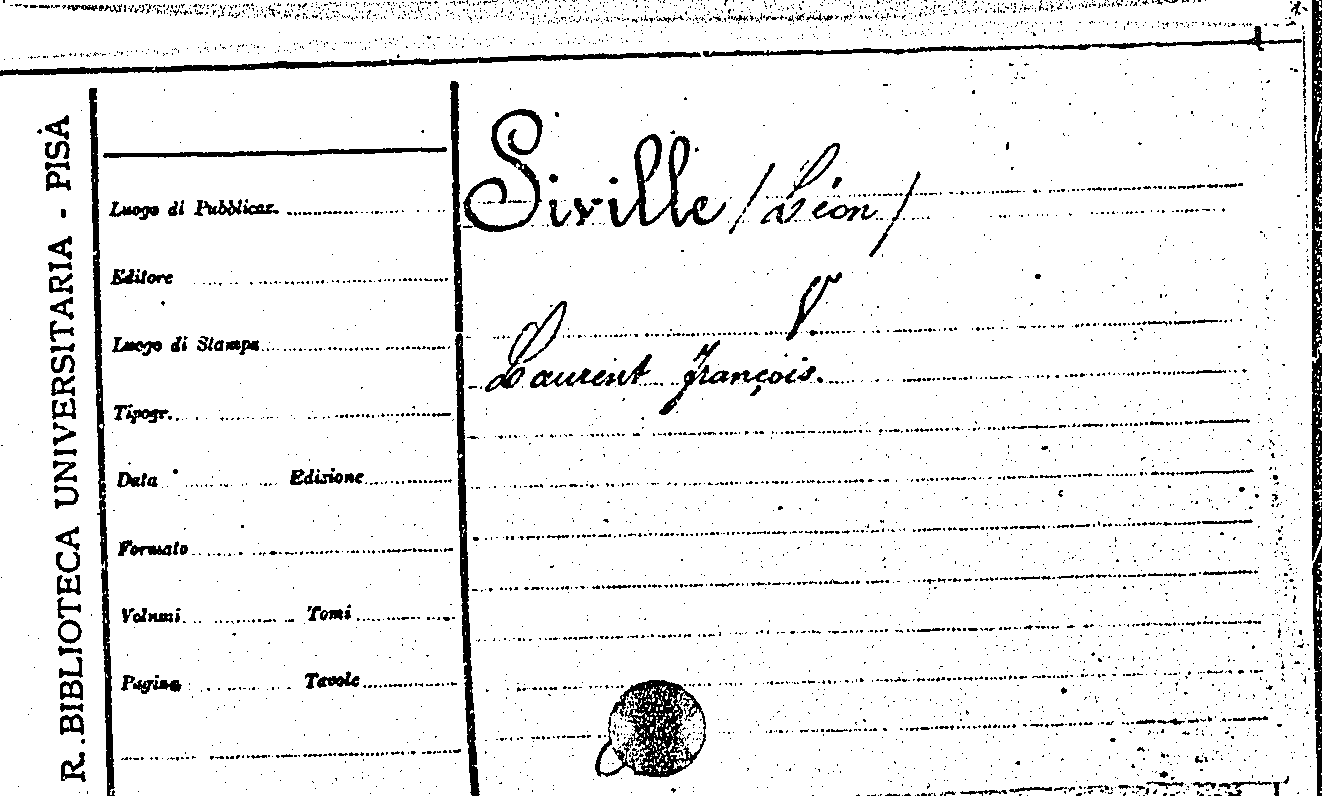 R. BIBLIOTECA UNIVERSITARIA - PISA
Luogo di Pubblicaz.
Editore
Luogo di Stampa
Tipogr.
Data Edizione
Formato
Volumi Tomi
Pagine Tavole
Siville (Léon)
V.
Laurent François.